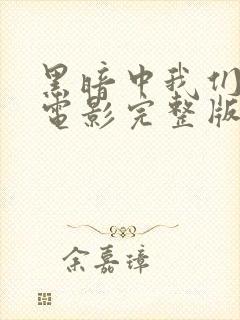 黑暗中我们
电影完整版
余嘉璋